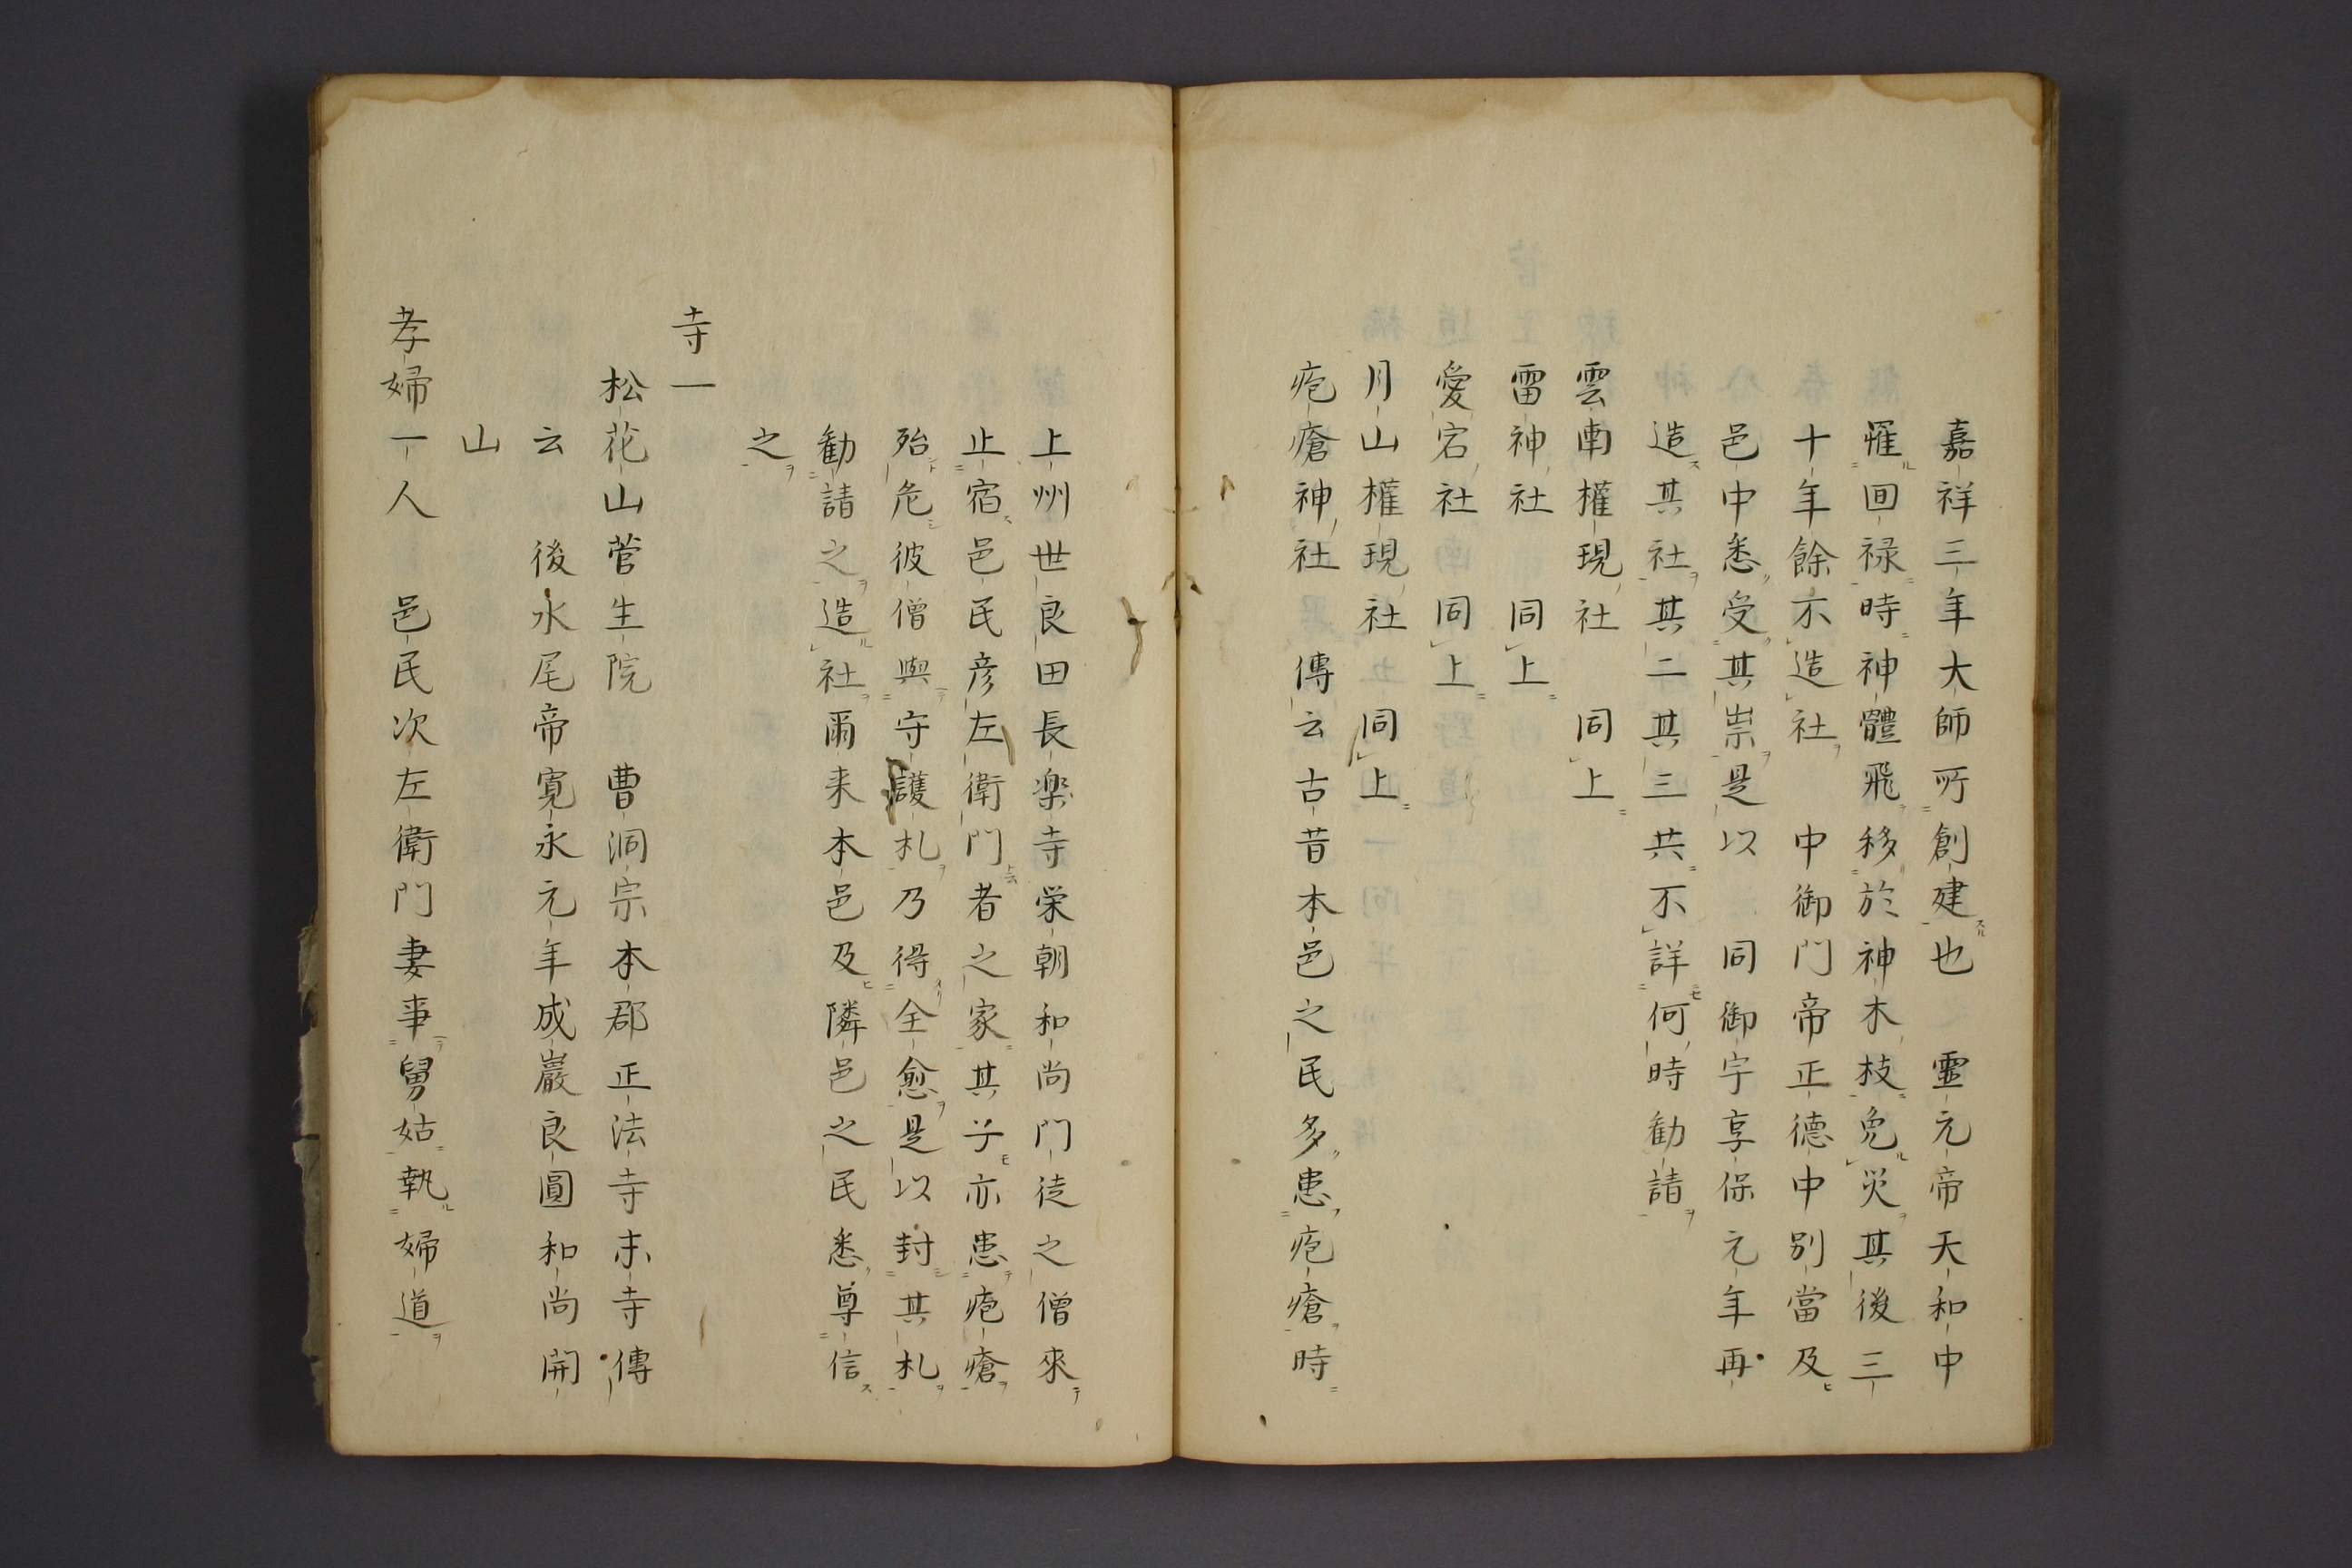 嘉祥三年大師所創建也　靈元帝天和中
罹回禄時神體飛移於神木枝免災其後三
十年餘不造社　中御門帝正德中別當及
邑中悉受其祟是以　同御宇享保元年再
造其社其二其三共不詳何時勧請
雲南權現社　同上
雷神社　同上
愛宕社　同上
月山權現社　同上
疱瘡神社　傳云古昔本邑之民多患疱瘡時
上州世良田長楽寺栄朝和尚門徒之僧來
止宿邑民彦左衛門者之家其子亦患疱瘡
殆危彼僧與守護札乃得全愈是以封其札
勧請之造社爾来本邑及隣邑之民悉尊信
之
寺一
松花山菅生院　曹洞宗本郡正法寺末寺傳
云　後水尾帝寛永元年成巖良圓和尚開
山
孝婦一人　邑民次左衛門妻事舅姑執婦道